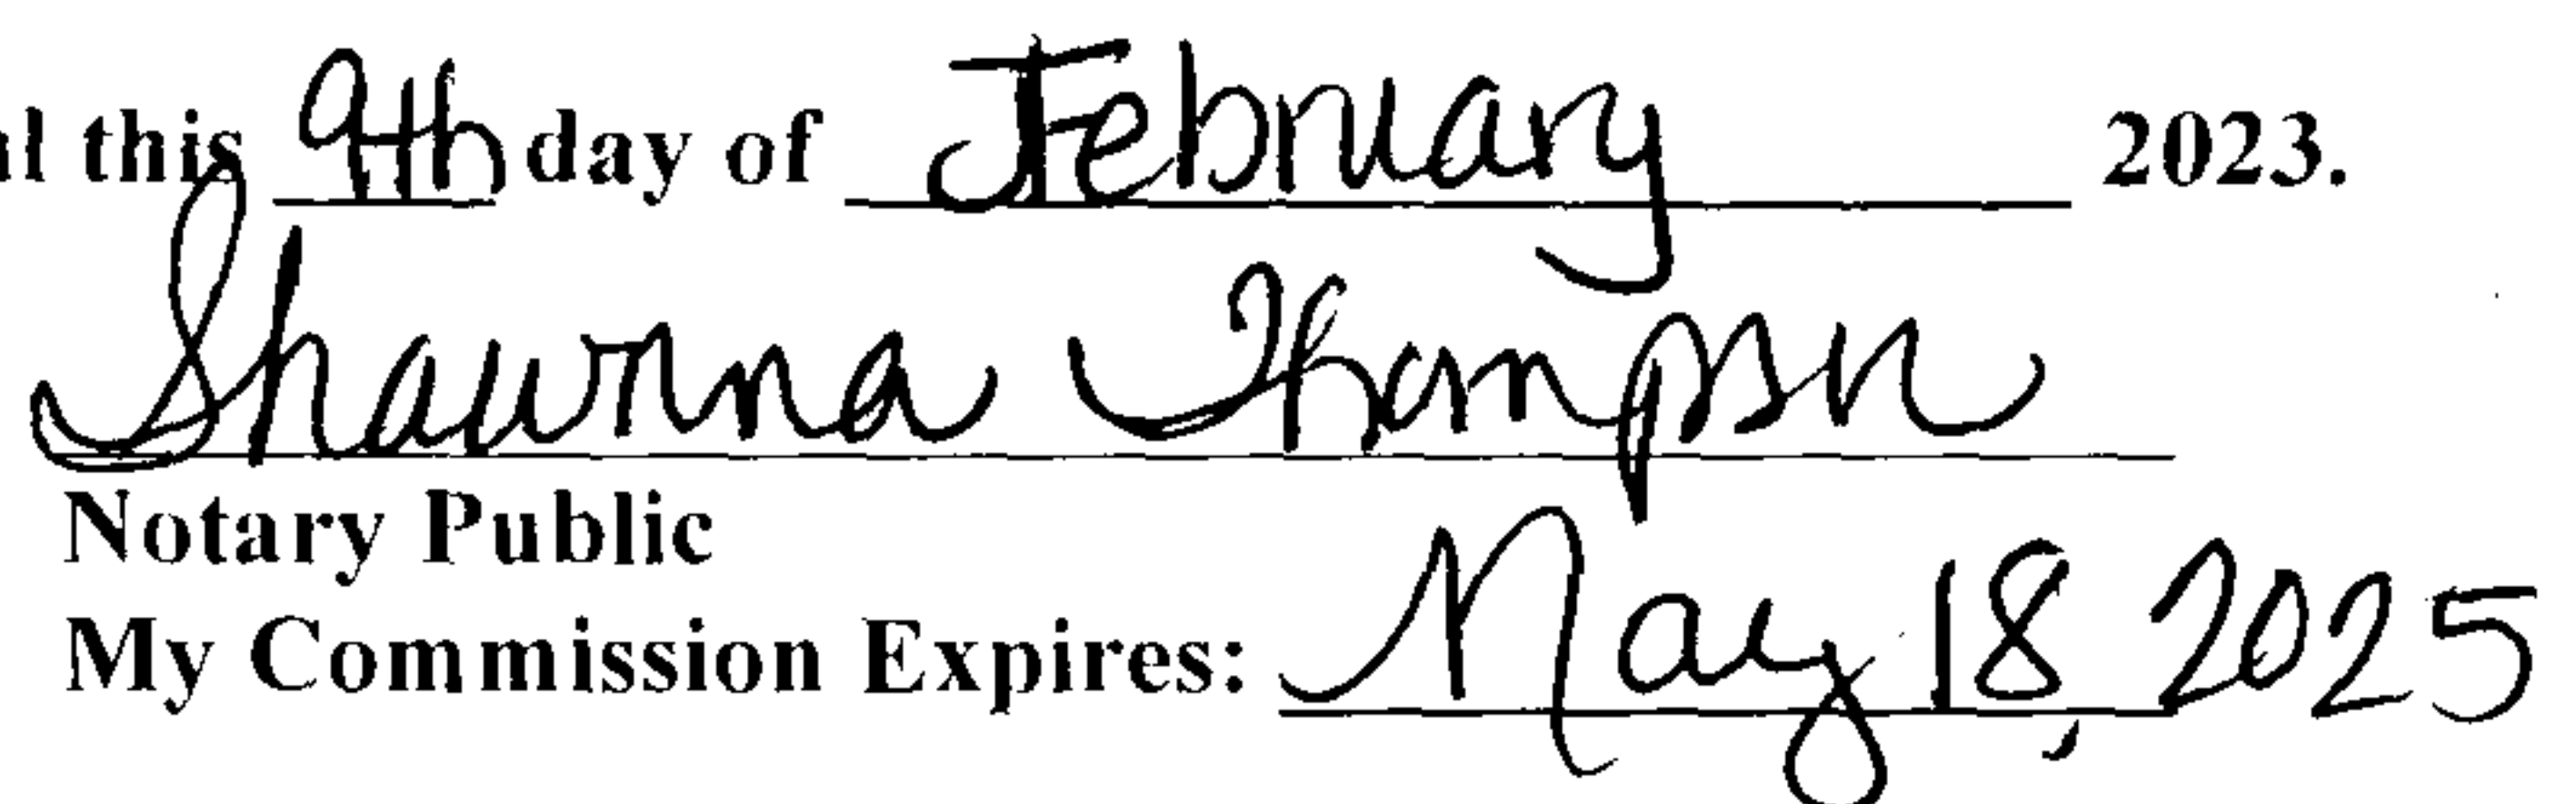 al this 9th day of February 2023.
Shawnna Thompson
Notary Public
My Commission Expires: May 18, 2025